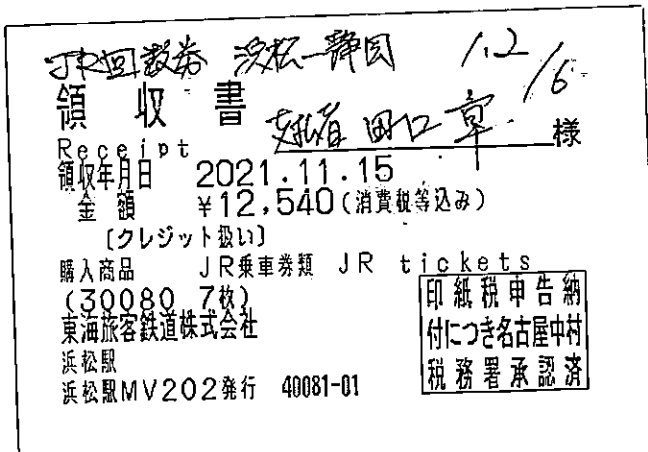 JR回数券 浜松-静岡 12/6
領収書 支払者 田口章 様
Receipt
領収年月日 2021.11.15
金額 ¥12,540(消費税等込み)
[クレジット扱い]
購入商品 JR乗車券類 JR tickets
(30080 7枚)
東海旅客鉄道株式会社
浜松駅
浜松駅MV202発行 40081-01
印紙税申告納
付につき名古屋中村
税務署承認済